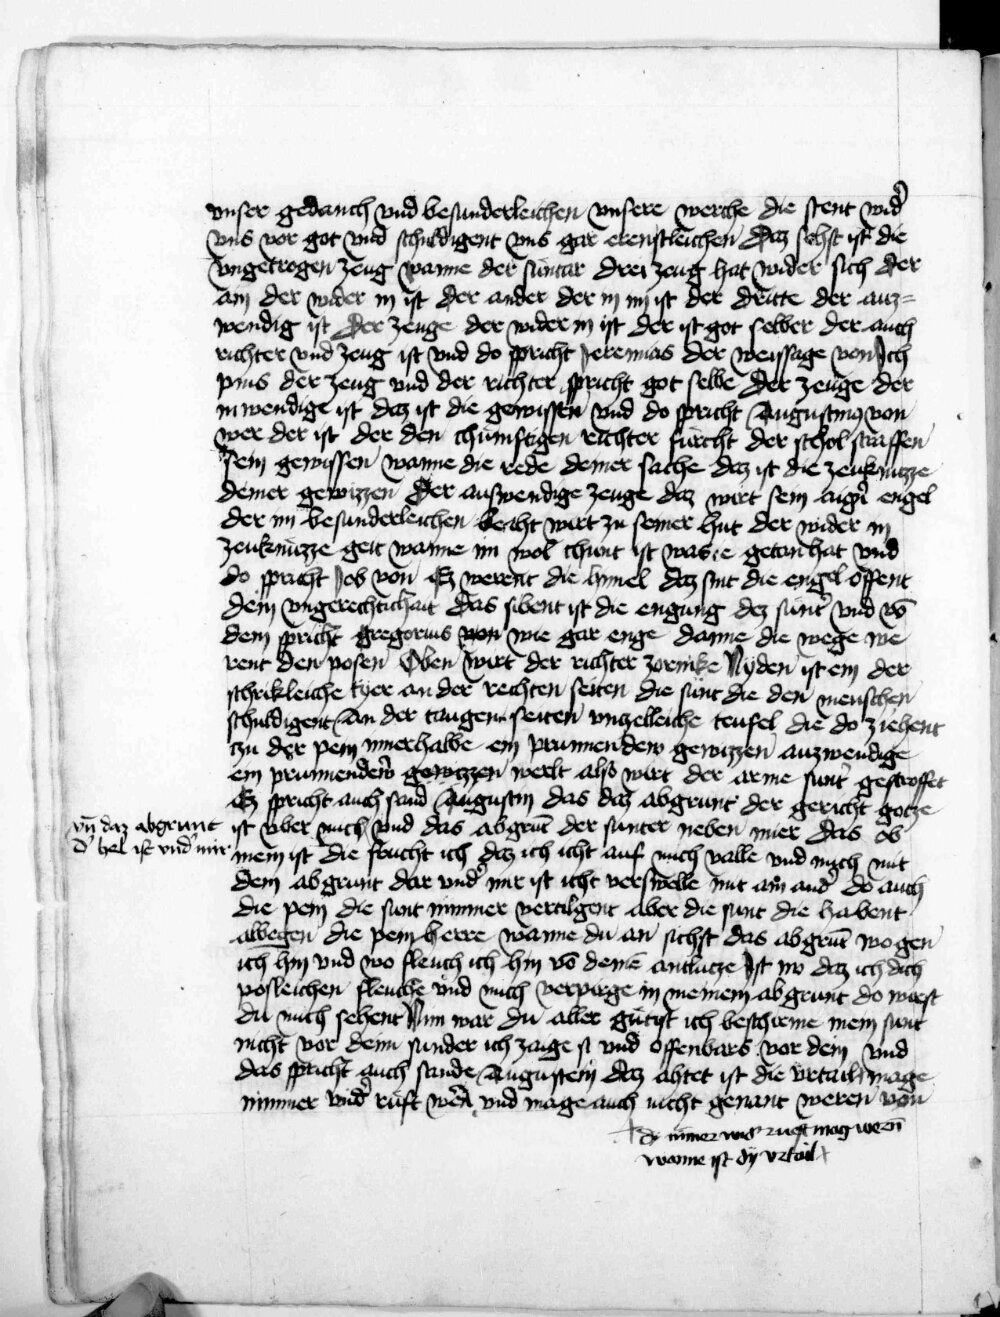 vnser gedanch vnd besunderleichen vnsere werche die stent wid̉
vns vor got vnd schuldigent vns gar erenstleichen Daz sehst ist die
vngetrogen zeug wanne der suntar drei zeug hat wider sich Der
ain der wider in ist der ander der in im ist der dritte der auz=
wendig ist Der zeuge der wider in ist der ist got selber der auch
richter vnd zeug ist vnd do spricht Jeremias der weissage von Ich
pins der zeug vnd der richter spricht got selbe Der zeuge der
inwendige ist daz ist die gewissen vnd do spricht Augustinus von
wer der ist der den chumftigen richter furcht der schol straffen
sein gewissen wanne die rede deiner sache daz ist die zeuknuzze
deiner gewizzen Der auswendige zeuge daz wirt sein aigen engel
der im besunderleichen wirt zu seiner hut der wider in
zeuknuzze geit wanne im wol chunt ist was e getan hat vnd
do spricht Job von Ez werent die himel daz sint die engel offent
dein vngerechtichait Das sibent ist die engung dez sunt̉ vnd vō
dem spricht gregorius von wie gar enge danne die wege we
rent den posen Oben wirt der richter zornike Nyden ist ein der
schrikleiche tyer an der rechten seiten die sunt die den menschen
schuldigent An der tangen seiten vnzelleiche teufel die do ziehent
tzu der pein innerhalbe ein prinnendew gewizzen auzwendige
ein prinnendew̉ gewizzen werlt also wirt der arme sunt̉ gestroffet
Ez spricht auch sand Augustin das daz abgrunt der gericht gotze
ist vber mich vnd das abgrūt der sunter neben mier das ob
vn̄ daz abgrunt
d̉ hel ist vnd̉ mir
mein ist die forcht ich daz ich icht auf mich valle vnd mich mit
dem abgrunt dar vnd̉ mir ist icht verswelle mit ain and̉ do auch
die pein die sunt nimmer vertilgent aber die sunt die habent
albegen die pein herre wanne du an sichst das abgrūt wo gen
ich hin vnd wo fleuch ich hin vō deinē antlucze Ist wo daz ich dich
posleichen fleuche vnd mich verpirge in meinem abgrunt do wirst
du mich sehent Nim war du aller gutist ich beschirme mein sunt
nicht vor deim sunder ich zaige si vnd offenbars vor dem vnd
das spricht auch sande Augustein daz ahtet ist die vrtail mage
nimmer wid̉ ruft werd̄ vnd mage auch nicht genant weren von
dy nimer wid̉ ruft mag wern̄
wanne ist dy vrtail